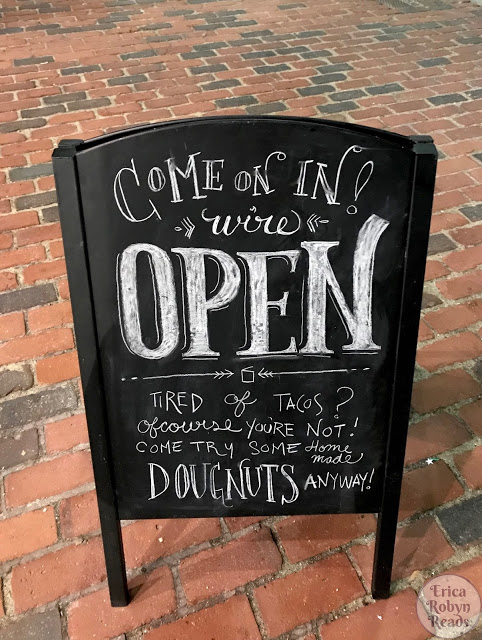 COME ON IN!
we're
OPEN
TIRED OF TACOS?
ofcourse YOU'RE NOT!
COME TRY SOME Home
made
DOUGNUTS ANYWAY!
Erica
Robyn
Reads